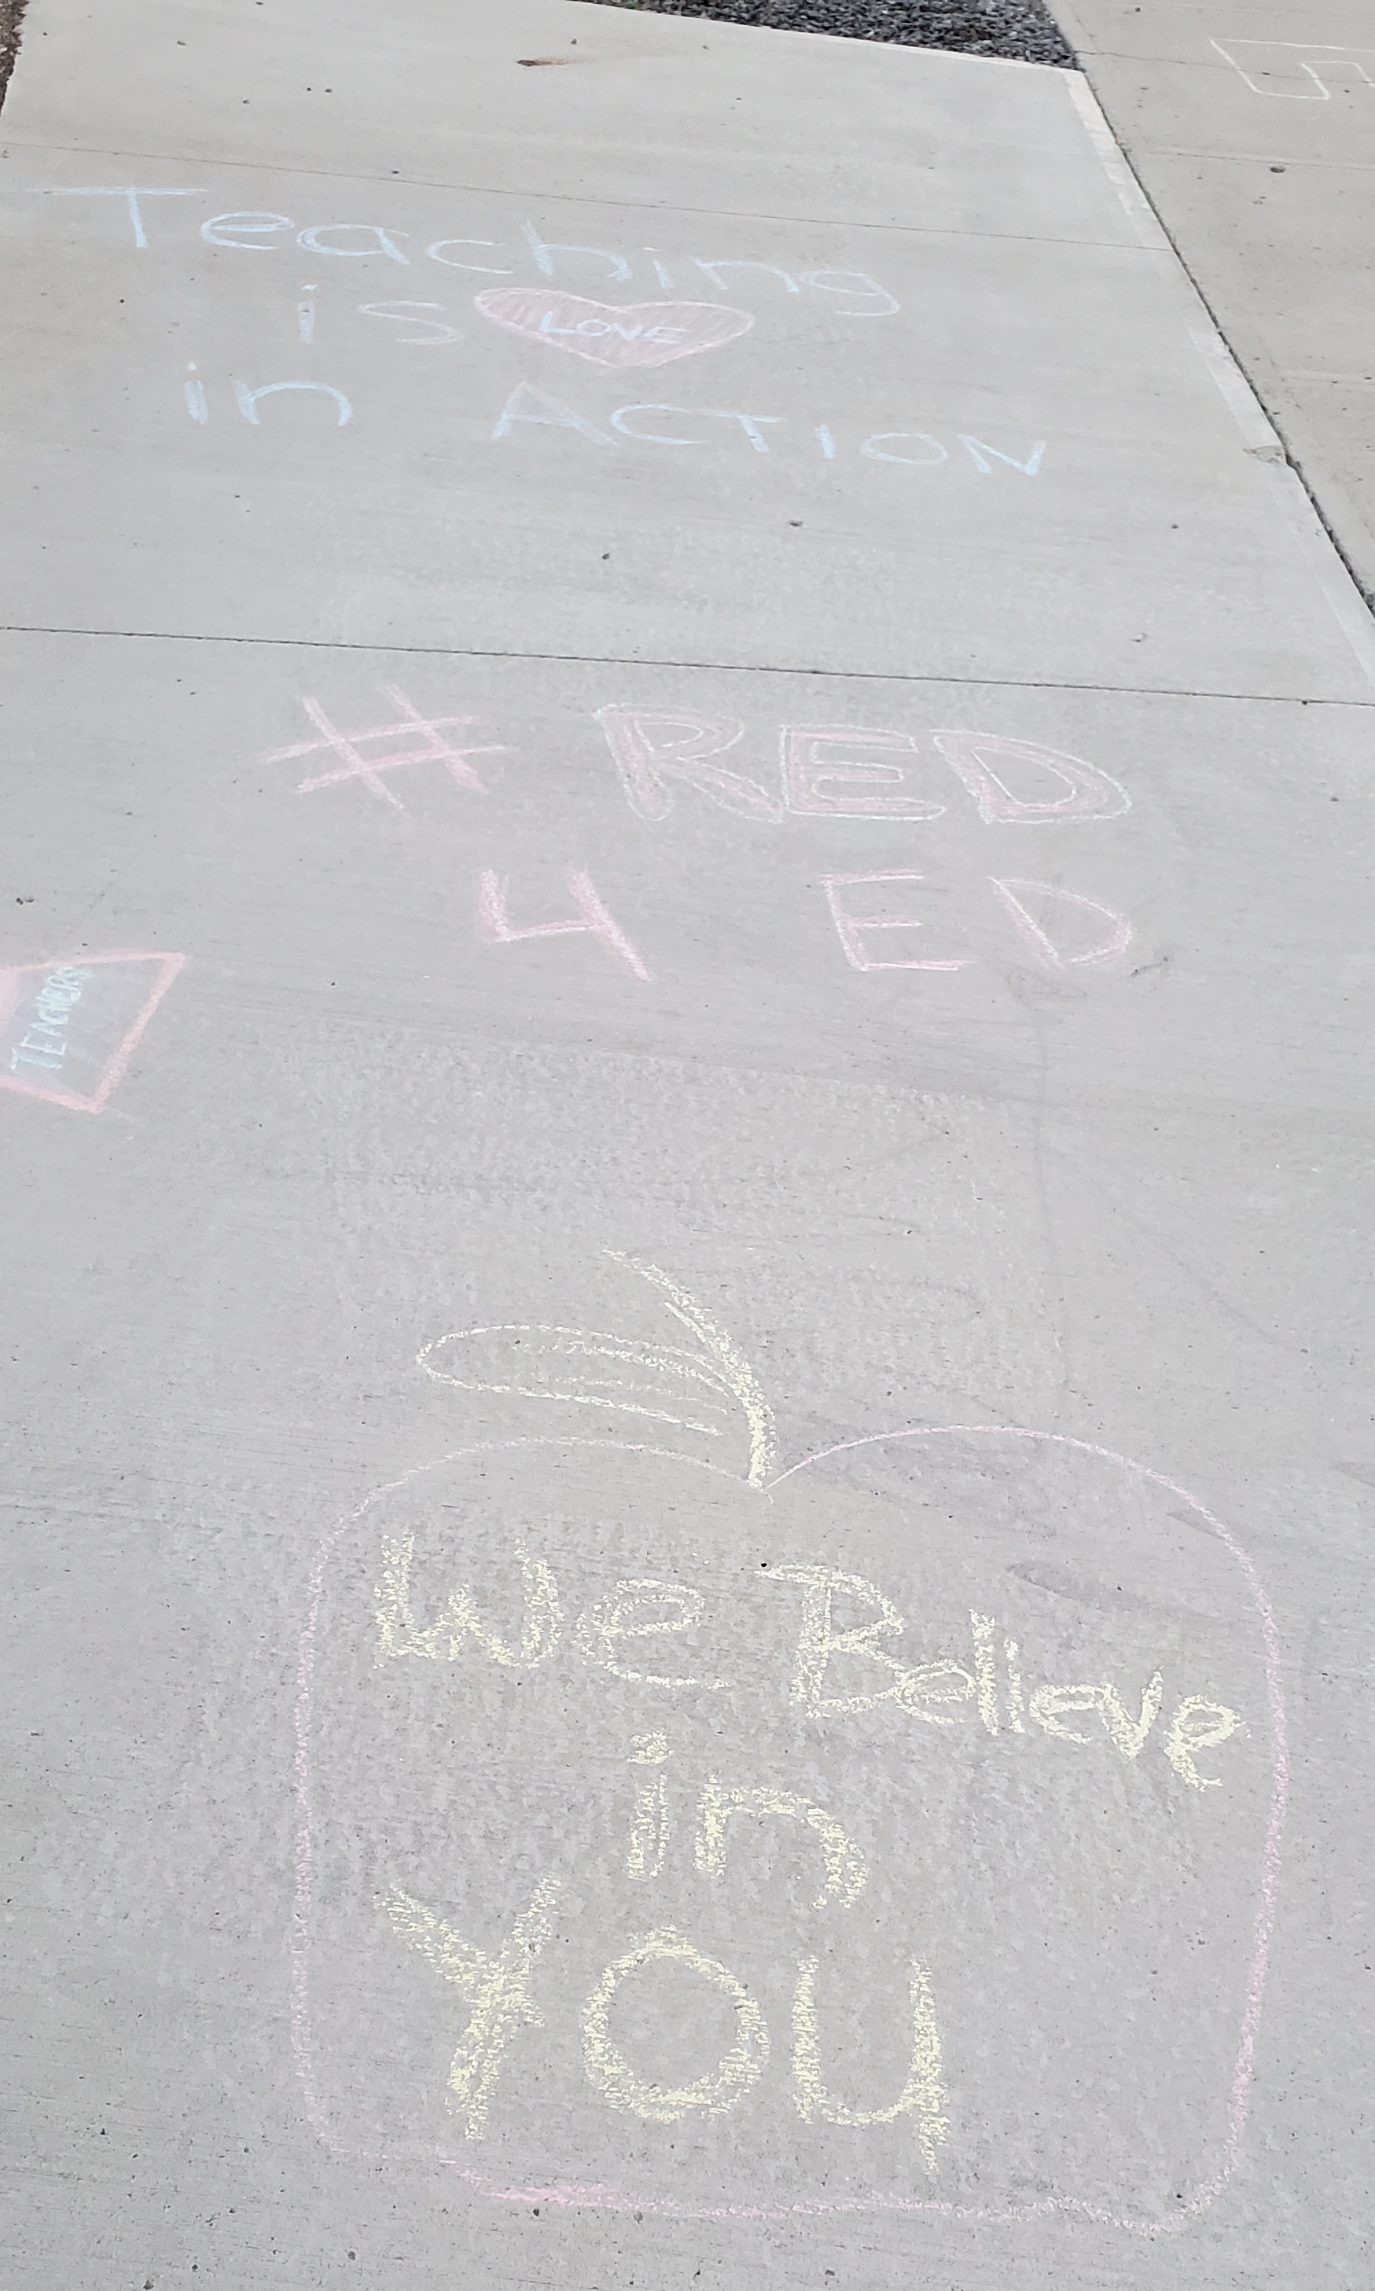 Teaching
is LOVE
in ACTION
# RED
4 ED
TEACHERS
We Believe
in
YOU